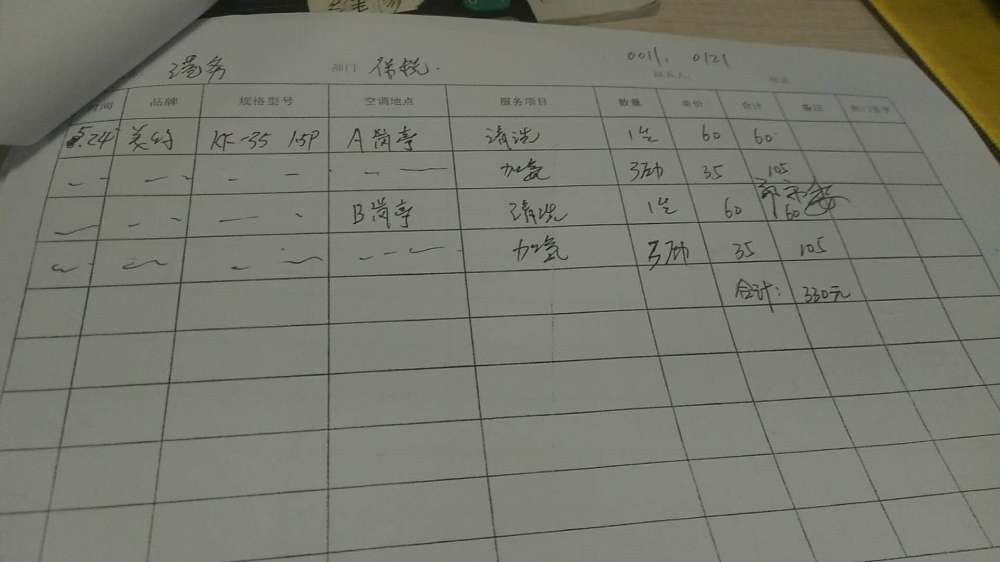 港务 部门 保税. 0011. 0121
联系人
时间 品牌 规格型号 空调地点 服务项目 数量 单价 合计 备注
5.24 美的 KF-35 1.5P A岗亭 清洗 1台 60 60
加氟 3压 35 105
B岗亭 清洗 1台 60 60
加氟 3压 35 105
合计: 330元